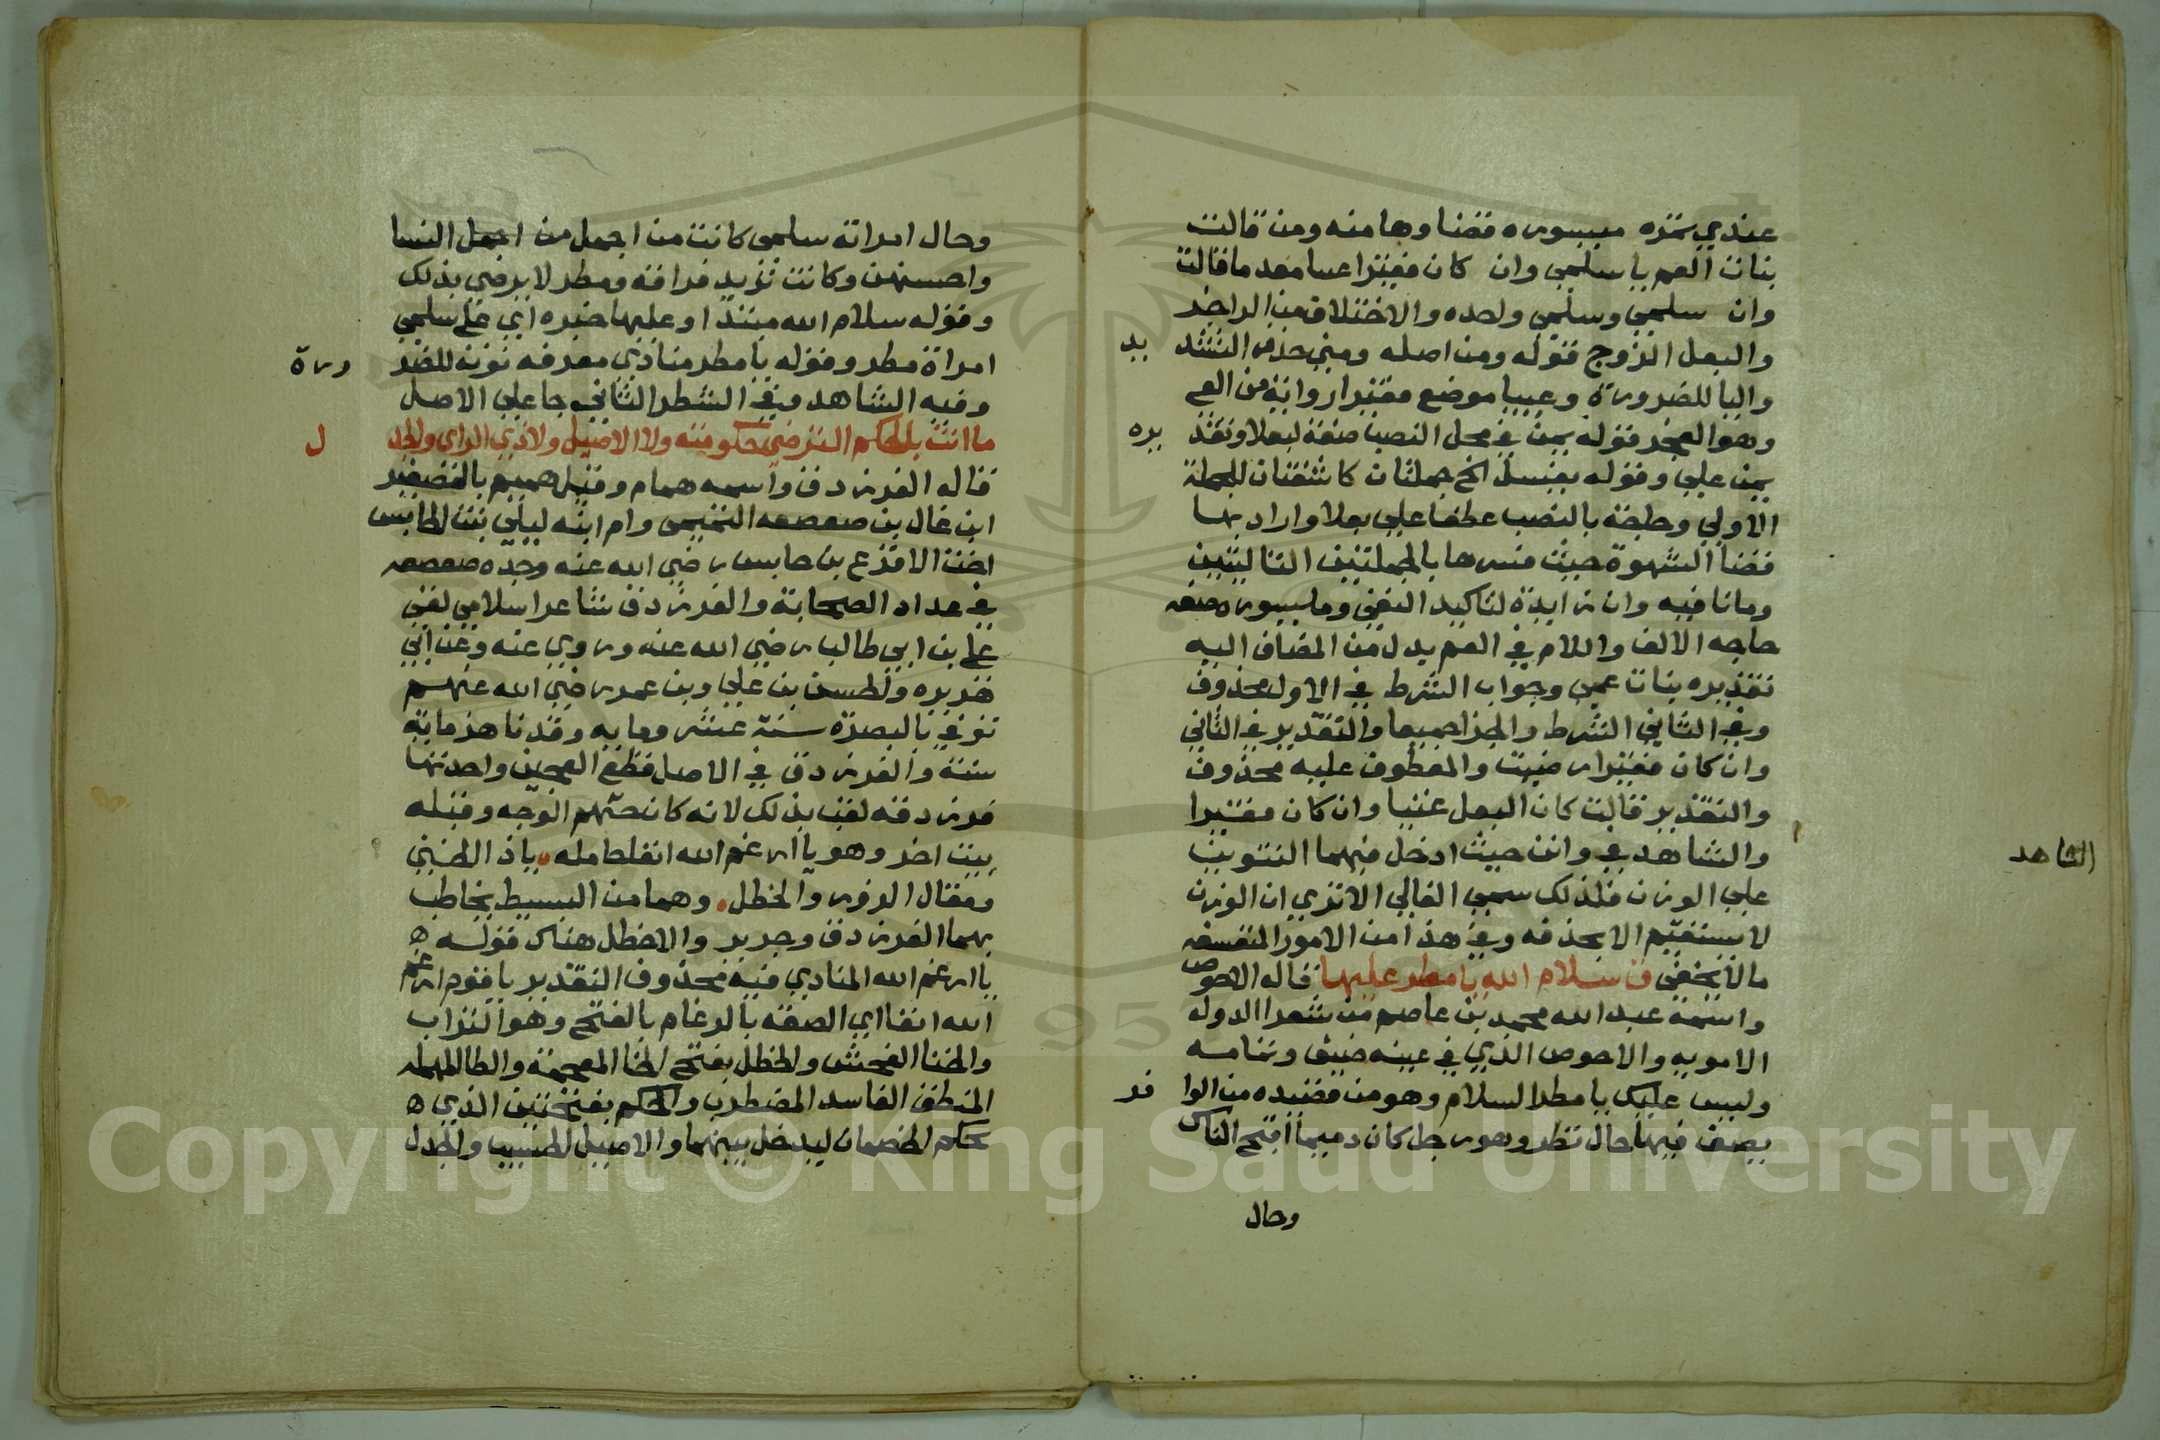 عندي ثمنه ميسوره قضاوها منه ومن قالت
بنات العم يا سلمي وان كان فقيرا عسا معدما قالت
وان سلمي وسلمي واحده والاختلاق من الراجز
والبعل الزوج قوله ومن اصله ومني حذف التشد
يد
واليا للضرورة وعيبا موضع فقيرا رواية من العي
وهو العجز قوله يمن في محل النصب صفة لبعلا وتقد
يره
يمن علي وقوله يغسل الخ جملتان كاشفتان للجملة
الاولي وحاجة بالنصب عطفا علي بعلا واراد بها
قضا الشهوة حيث فسرها بالجملتين التاليتين
وما نافيه وان زايدة لتاكيد النفي وميسوره صفه
حاجه الالف واللام في العم بدل من المضاف اليه
تقديره بنات عمي وجواب الشرط في الاول محذوف
وفي الثاني الشرط والجزا جميعا والتقدير في الثاني
وان كان فقيرا رضيت والمعطوف عليه محذوف
والتقدير قالت كان البعل غنيا وان كان فقيرا
والشاهد في وانن حيث ادخل فيهما التنوين
الشاهد
علي الوزن فلذلك سمي الغالي الا تري ان الوزن
لا يستقيم الا بحذفه وفي هذا من الامور المتعسفه
ما لا يخفي ق سلام الله يا مطر عليها قاله الاحوص
واسمه عبد الله محمد بن عاصم من شعرا الدوله
الامويه والاحوص الذي في عينه ضيق وتمامه
وليس عليك يا مطر السلام وهو من قصيده من الوا
فر
يصف فيها حال مطر وهو رجل كان دميما اقبح الناس
وحال
وحال امراته سلمي كانت من اجمل من اجمل النسا
واحسنهن وكانت تريد فراقه ومطر لا يرضي بذلك
وقوله سلام الله مبتدا وعليها خبره اي علي سلمي
امراة مطر وقوله يا مطر منادي معرفه نونه للضر
ورة
وفيه الشاهد وفي الشطر الثاني جا علي الاصل
ما انت بالحكم الترضي حكومته ولا الاصيل ولا ذي الراي والجد
ل
قاله الفرزدق واسمه همام وقيل هميم بالتصغير
ابن غالب بن صعصعه التميمي وام ابيه ليلي بنت الحابس
اخت الاقرع بن حابس رضي الله عنه وجده صعصعه
في عداد الصحابة والفرزدق شاعر اسلامي لقي
علي بن ابي طالب رضي الله عنه وروي عنه وعن ابي
هريره والحسن بن علي وبن عمر رضي الله عنهم
توفي بالبصرة سنة عشر ومايه وقد ناهز ماية
سنة والفرزدق في الاصل قطع العجين واحدتها
فرزدقه لقب بذلك لانه كان جهم الوجه وقبله
بيت اخر وهو يا ارغم الله انفا حامله يا ذا الخني
ومقال الزور والخطل وهما من البسيط يخاطب
بهما الفرزدق وجرير والاخطل هناك قوله ه
يا ارغم الله المنادي فيه محذوف التقدير يا قوم ارغم
الله انفا اي الصقه بالرغام بالفتح وهو التراب
والخنا الفحش والخطل بفتح الخا المعجمة والطا المهمله
المنطق الفاسد المضطرب والحكم بفتحتين الذي ه
يحكم الخصمان ليدخل بينهما والاصيل الحسيب والجدل
Copyright © King Saud University